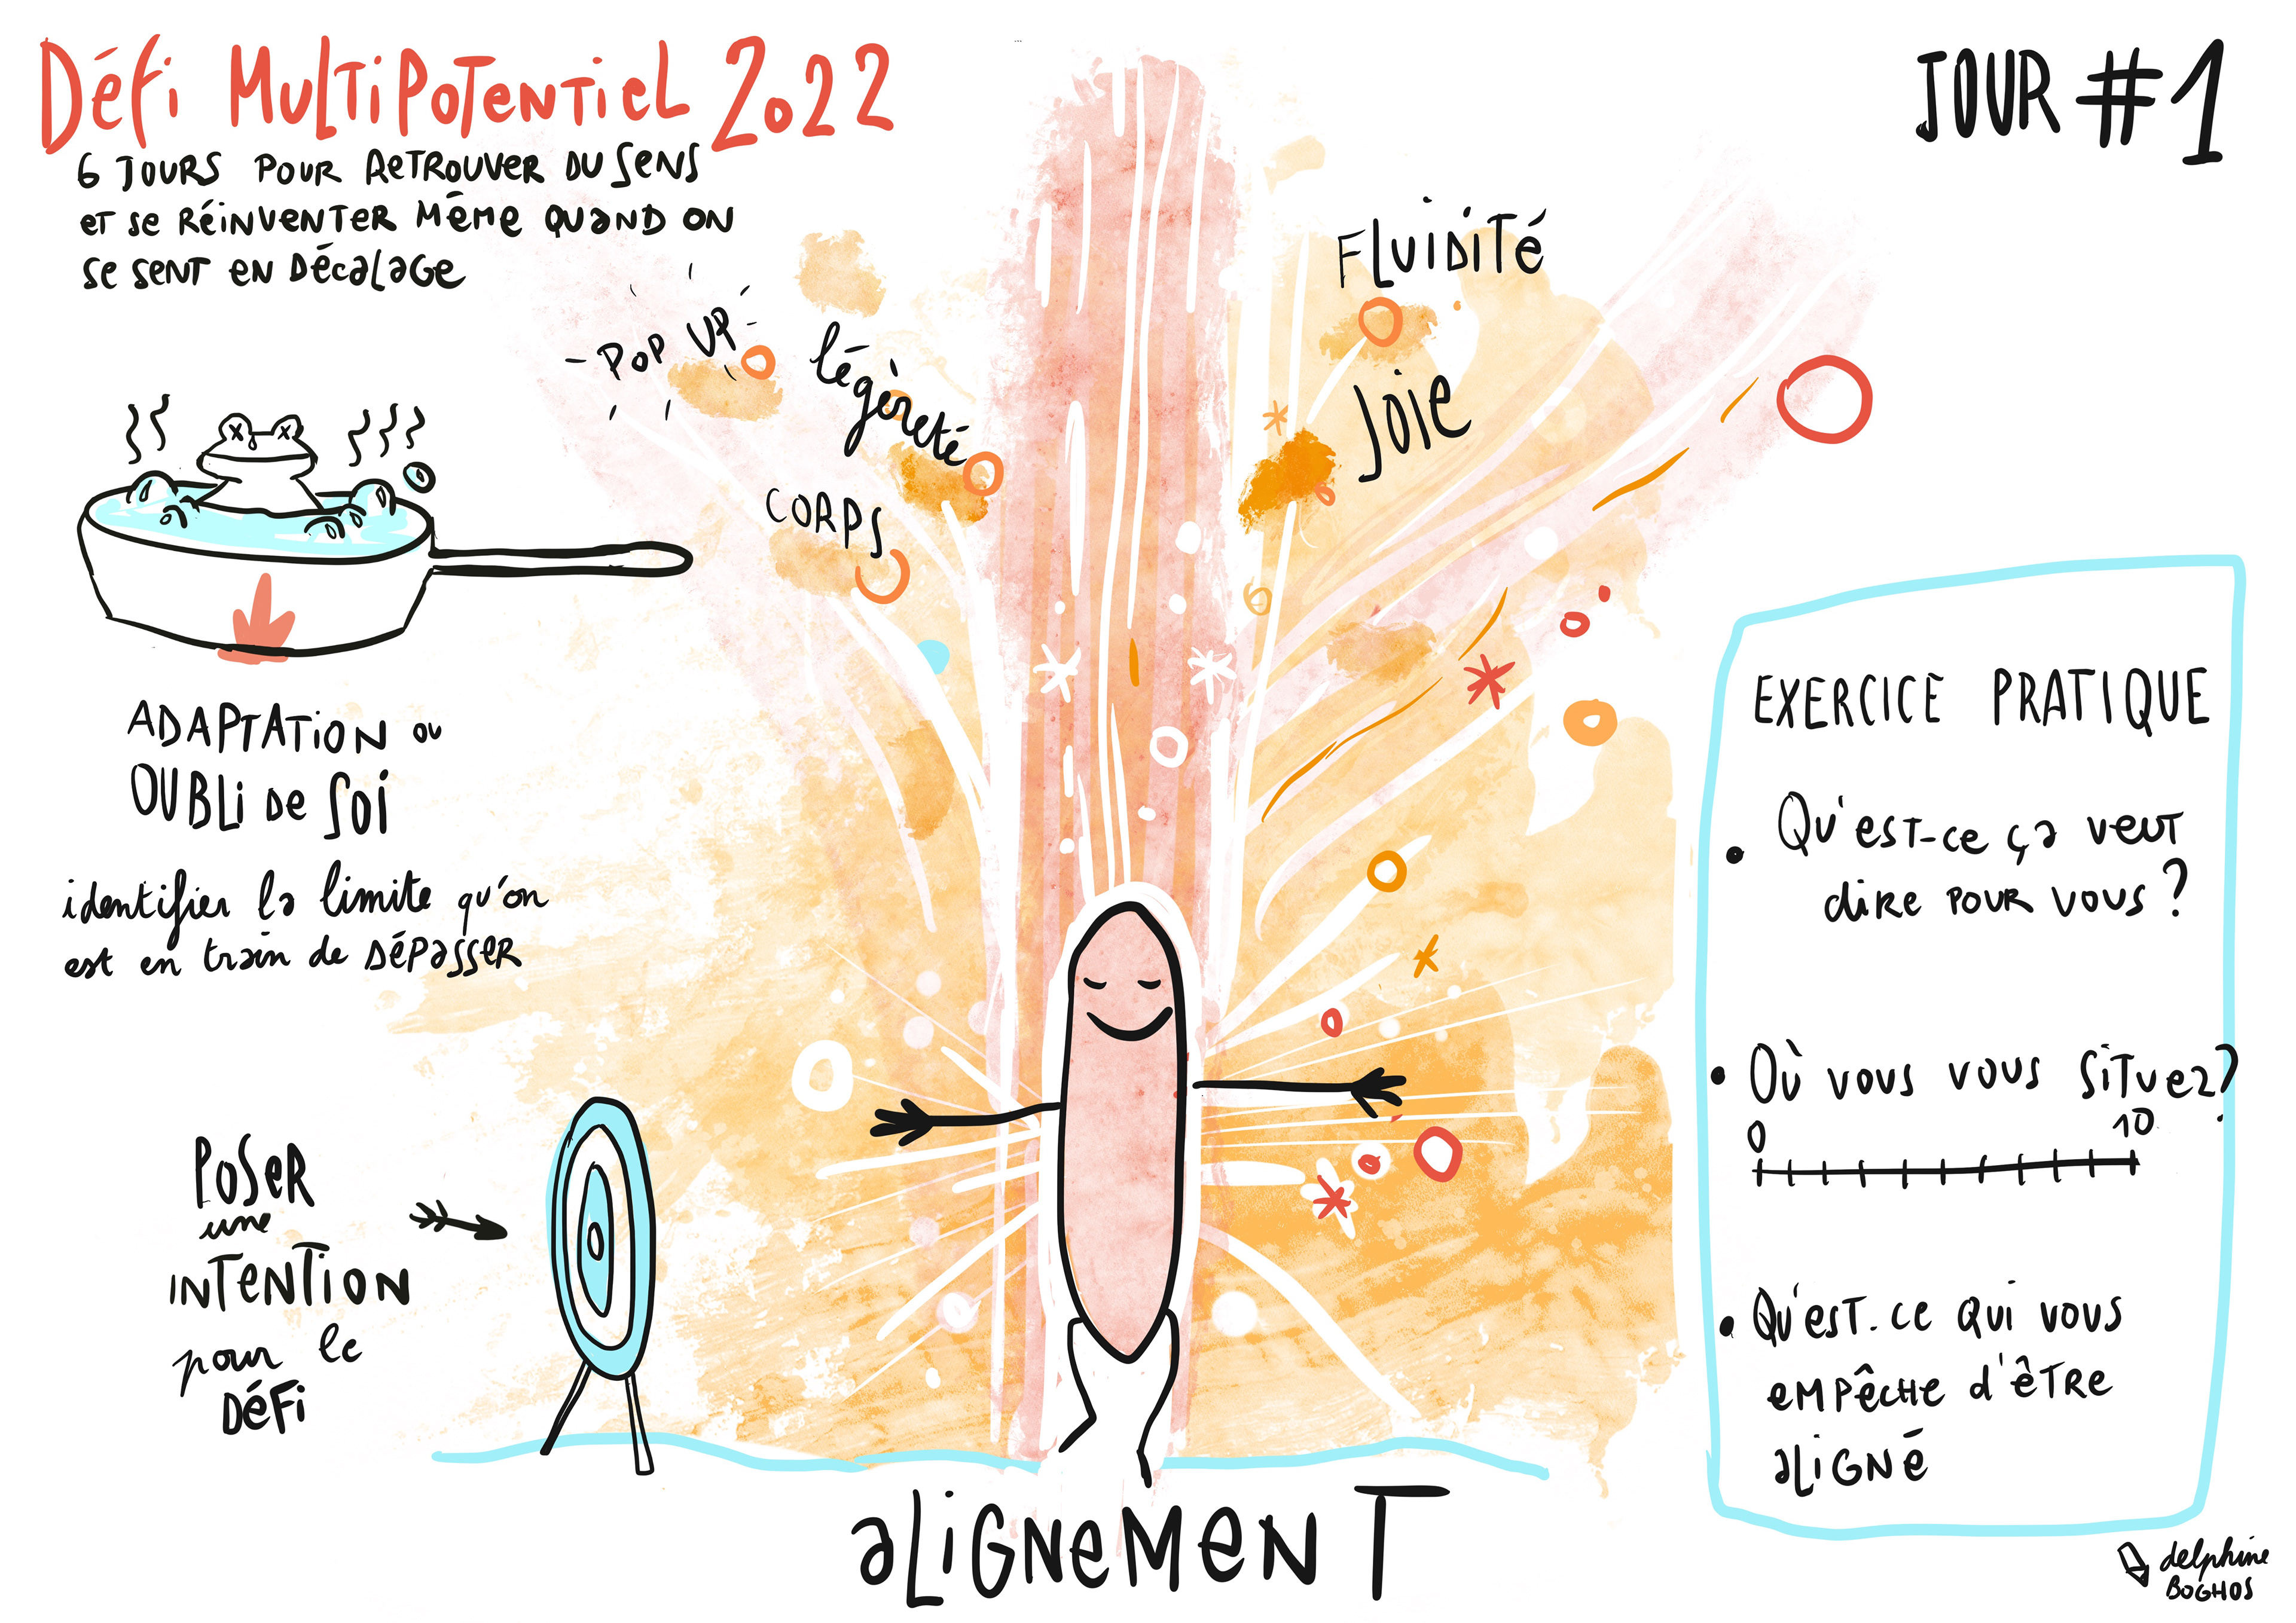 Défi MultiPotentiel 2022
6 jours pour retrouver du sens
et se réinventer même quand on
se sent en décalage
JOUR #1
- POP UP -
légèreté
CORPS
FLUIDITÉ
JOIE
ADAPTATION ou
OUBLI de soi
identifier la limite qu'on
est en train de dépasser
POSER
une
INTENTION
pour le
DÉFI
ALIGNEMENT
EXERCICE PRATIQUE
• Qu'est-ce ça veut
dire pour vous ?
• Où vous vous situez ?
0 10
• Qu'est-ce qui vous
empêche d'être
aligné
delphine
BOGHOS